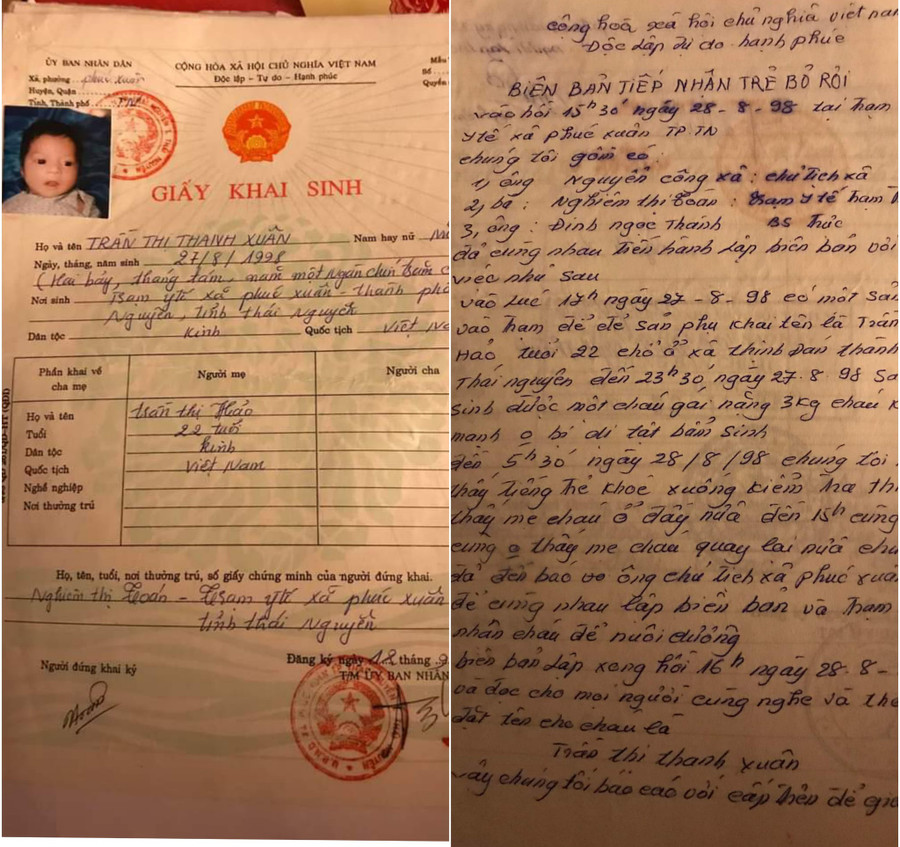 ỦY BAN NHÂN DÂN
Xã, phường Phúc Xuân
Huyện, Quận
Tỉnh, Thành phố T.N
CỘNG HÒA XÃ HỘI CHỦ NGHĨA VIỆT NAM
Độc lập - Tự do - Hạnh phúc
Mẫu
Số
Quyển
GIẤY KHAI SINH
Họ và tên TRẦN THỊ THANH XUÂN Nam hay nữ
Ngày, tháng, năm sinh 27/8/1998
(Hai bảy, tháng tám, năm một ngàn chín trăm
Nơi sinh Trạm ytế xã phúc xuân - thành phố
Nguyên, tỉnh thái nguyên
Dân tộc Kinh Quốc tịch Việt
Phần khai về cha mẹ
Người mẹ
Người cha
Họ và tên Trần thị Hảo
Tuổi 22 tuổi
Dân tộc Kinh
Quốc tịch Việt Nam
Nghề nghiệp
Nơi thường trú
Họ, tên, tuổi, nơi thường trú, số giấy chứng minh của người đứng khai.
Nghiêm thị Toán - Trạm ytế xã phúc xuân
tỉnh thái Nguyên
Người đứng khai ký
Đăng ký ngày 18 tháng 9
T/M ỦY BAN NHÂN
cộng hoà xã hội chủ nghĩa việt nam
Độc lập tự do hạnh phúc
BIÊN BẢN TIẾP NHẬN TRẺ BỎ RƠI
vào hồi 15h30 ngày 28-8-98 tại trạm
y tế xã phúc xuân TP.TN
chúng tôi gồm có:
1, ông Nguyễn công xã: chủ tịch xã
2, bà: Nghiêm thị toán: trạm y tế trạm
3, ông: Đinh ngọc Thánh BS
đã cùng nhau tiến hành lập biên bản với
việc như sau
vào lúc 17h ngày 27-8-98 có một sản
vào trạm để đẻ sản phụ khai tên là Trần
Hảo tuổi 22 chỗ ở xã thịnh Đán thành
Thái nguyên đến 23h30, ngày 27.8.98
sinh được một cháu gái nặng 3kg cháu
mạnh o bị dị tật bẩm sinh
đến 5h30 ngày 28/8/98 chúng tôi
thấy tiếng trẻ khóc xuống kiểm tra thì
thấy mẹ cháu ở đấy nữa đến 15h cũng
cũng o thấy mẹ cháu quay lại nữa
đã đến báo ông chủ tịch xã phúc xuân
để cùng nhau lập biên bản và trạm
nhận cháu để nuôi dưỡng
biên bản lập xong hồi 16h ngày 28.8-
và đọc cho mọi người cùng nghe và
đặt tên cho cháu là
Trần thị thanh xuân
vậy chúng tôi báo cáo với cấp trên để